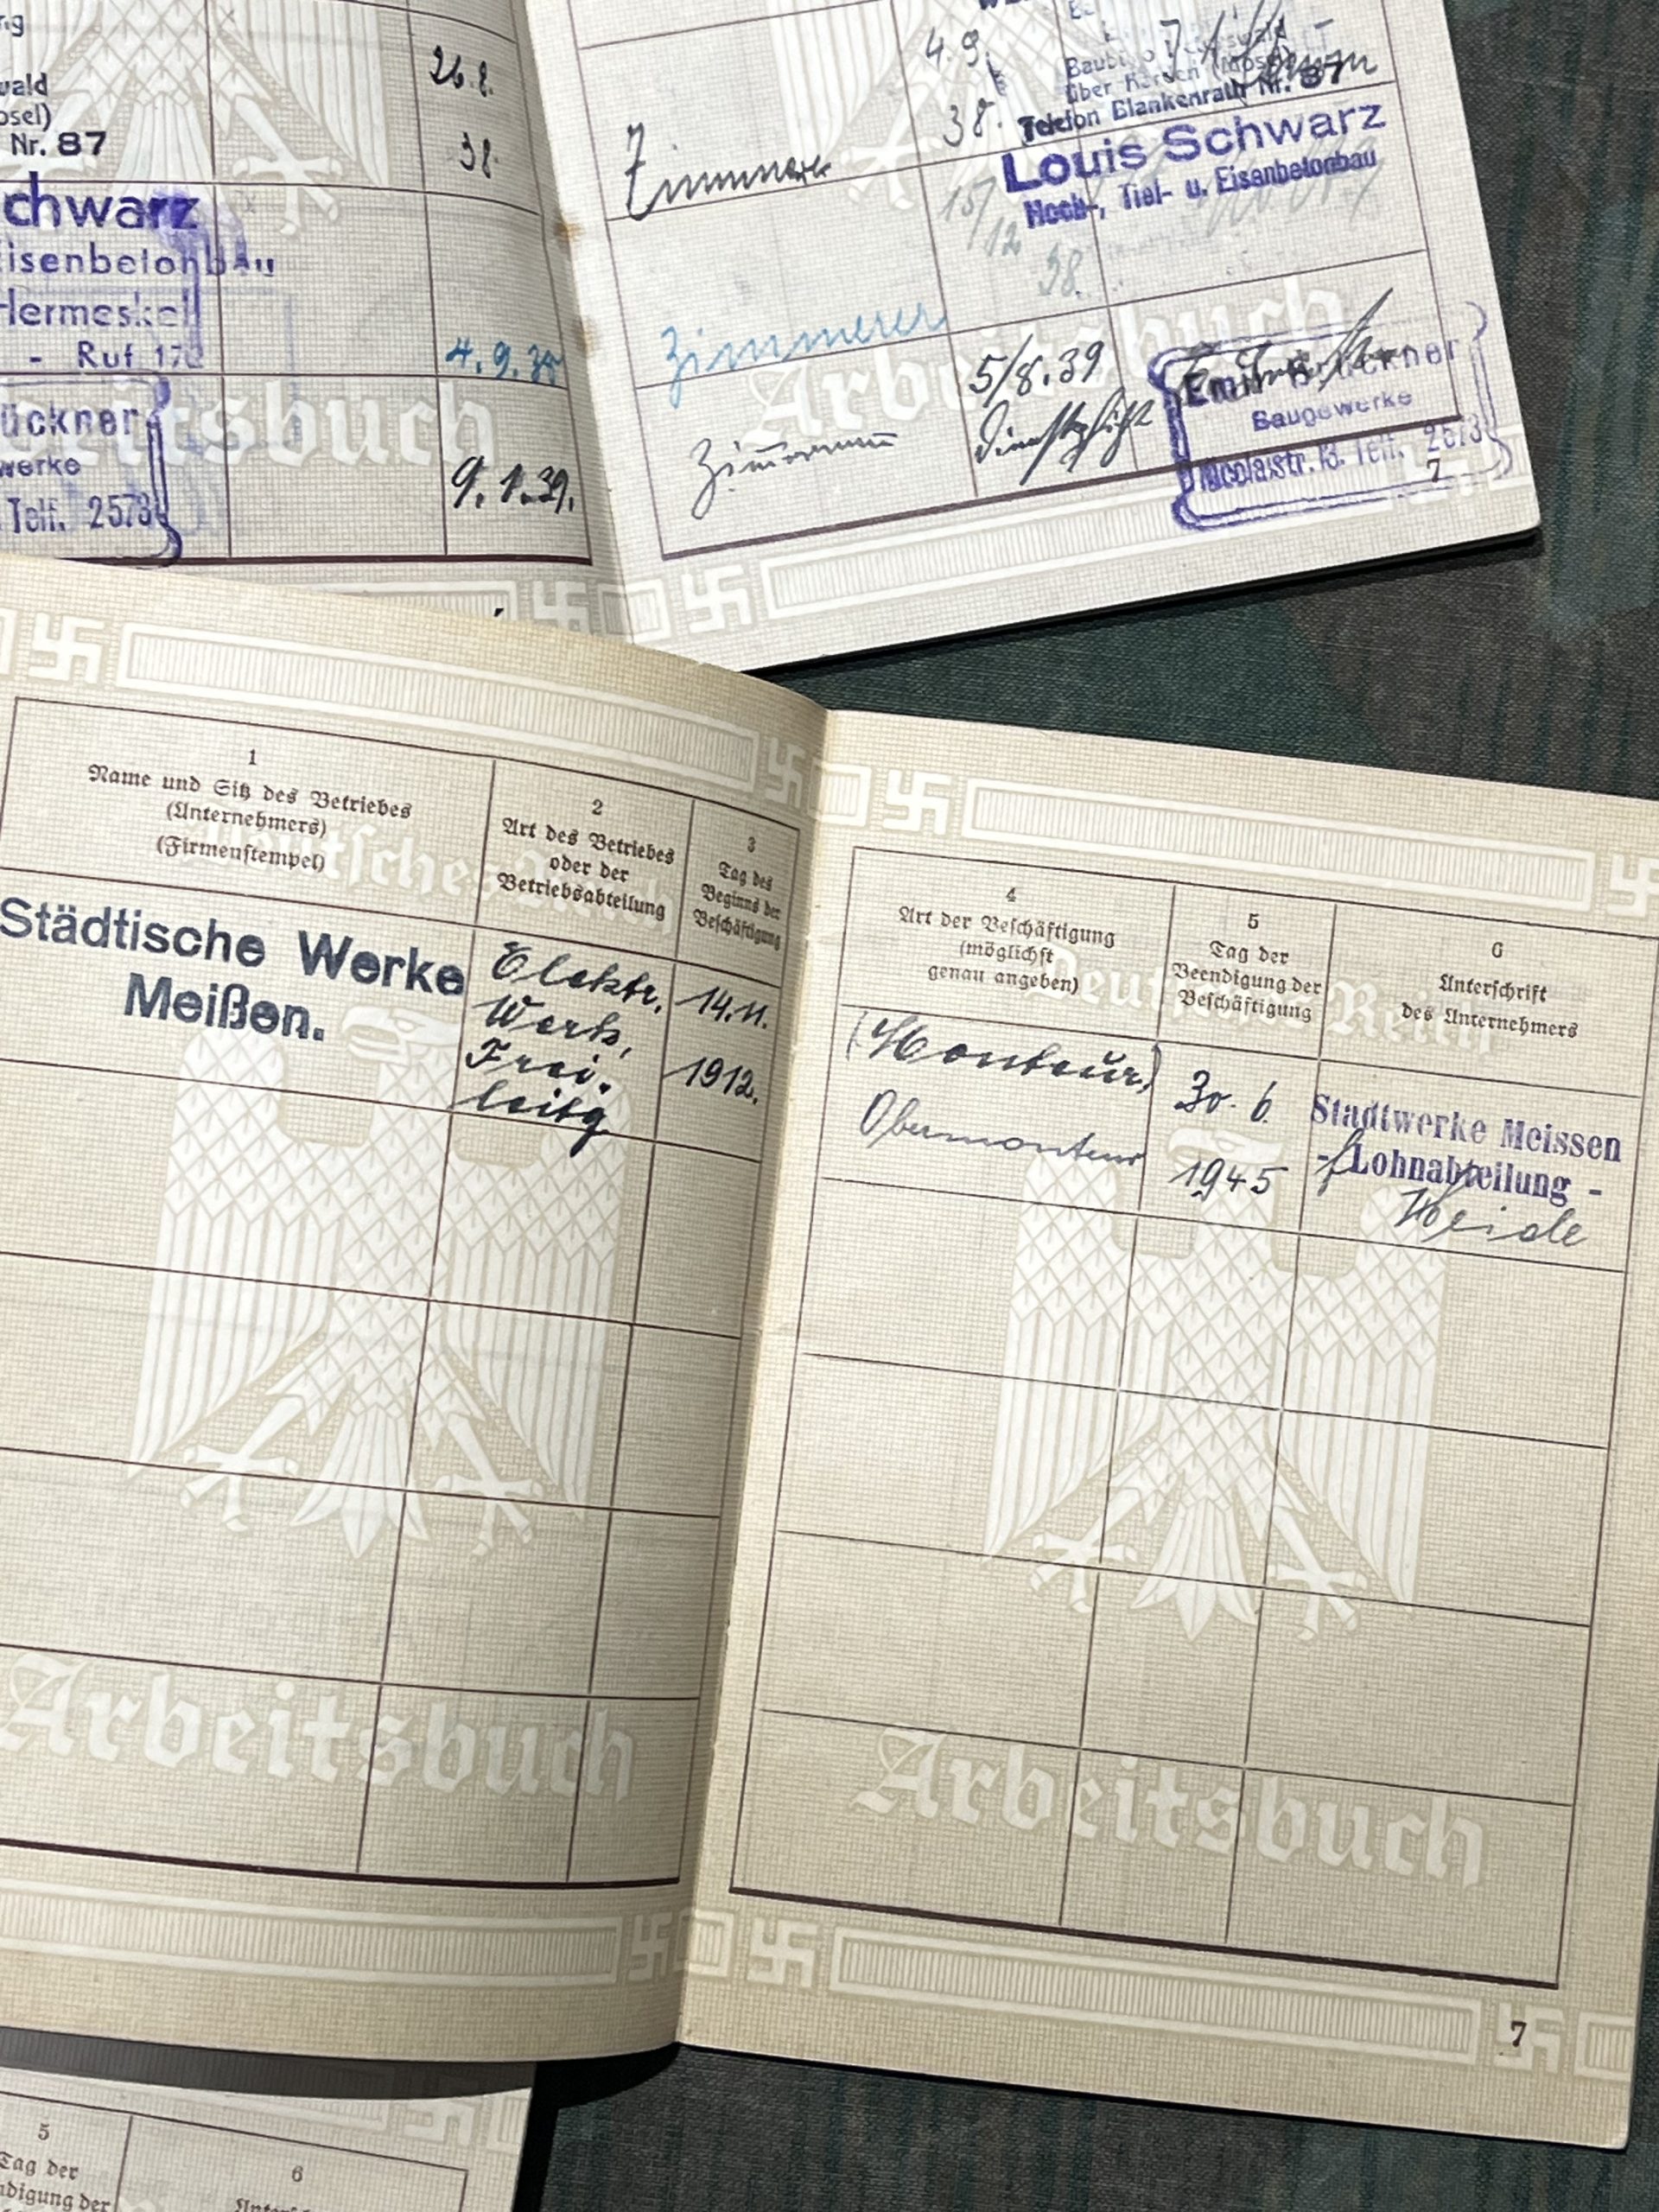 26.8.
38.
wald
osel)
Nr. 87
chwarz
isenbetonbau
Hermeskeil
- Ruf 172
4.9.38
ückner
werke
Telf. 2573
9.1.39.
4.9.
38.
Zimmerer
über (Mosel)
Telefon Blankenrath Nr. 87
Louis Schwarz
Hoch-, Tief- u. Eisenbetonbau
15/
12
38.
Zimmerer
5/8.39
Dienstpflicht
Emil Brückner
Baugewerke
Nicolaistr. 13. Telf. 2573
7
Arbeitsbuch
1
Name und Sitz des Betriebes
(Unternehmers)
(Firmenstempel)
2
Art des Betriebes
oder der
Betriebsabteilung
3
Tag des
Beginns der
Beschäftigung
Städtische Werke
Meißen.
Elektr.
Werk,
Frei.
leitg
14.11.
1912.
Arbeitsbuch
4
Art der Beschäftigung
(möglichst
genau angeben)
5
Tag der
Beendigung der
Beschäftigung
6
Unterschrift
des Unternehmers
Deutsches Reich
(Monteur)
Obermonteur
30. 6.
1945
Stadtwerke Meissen
- Lohnabteilung -
Heide
Arbeitsbuch
7
5
Tag der
ndigung der
6